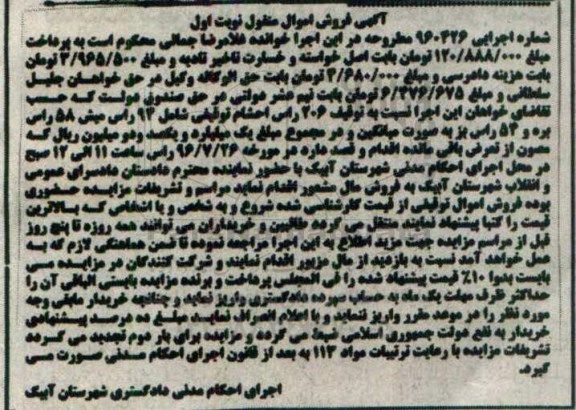 آگهی فروش اموال منقول نوبت اول
شماره اجرایی ۹۶۰۴۲۶ مطروحه در این اجرا خوانده غلامرضا جمالی محکوم است به پرداخت
مبلغ ۱۲۰/۸۸۸/۰۰۰ تومان بابت اصل خواسته و خسارت تاخیر تادیه و مبلغ ۳/۹۶۵/۵۰۰ تومان
بابت هزینه دادرسی و مبلغ ۳/۶۸۰/۰۰۰ تومان بابت حق الوکاله وکیل در حق خواهان جلیل
سلطانی و مبلغ ۶/۳۷۶/۶۷۵ تومان بابت نیم عشر دولتی در حق صندوق دولت که حسب
تقاضای خواهان این اجرا نسبت به توقیف ۲۰۶ راس احشام توقیفی شامل ۹۴ راس میش ۵۸ راس
بره و ۵۴ راس بز به صورت میانگین و در مجموع مبلغ یک میلیارد و یکصد ودو میلیون ریال که
مصون از تعرض باقی مانده اقدام و قصد دارد در مورخه ۹۶/۷/۲۶ راس ساعت ۱۱ الی ۱۲ صبح
در محل اجرای احکام مدنی شهرستان آبیک با حضور نماینده محترم دادستان دادسرای عمومی
و انقلاب شهرستان آبیک به فروش مال مذکور اقدام نماید مراسم و تشریفات مزایده حضوری
بوده فروش اموال توقیفی از قیمت کارشناسی شده شروع و به شخص و یا اشخاصی که بالاترین
قیمت را کتبا پیشنهاد نمایند منتقل می گردد طالبین و خریداران می توانند همه روزه تا پنج روز
قبل از مراسم مزایده جهت مزید اطلاع به این اجرا مراجعه نموده تا ضمن هماهنگی لازم که به
عمل خواهد آمد نسبت به بازدید از مال مزبور اقدام نمایند و شرکت کنندگان در مزایده می
بایست بدوا ۱۰٪ قیمت پیشنهاد شده را فی المجلس پرداخت و برنده مزایده بایستی الباقی آن را
حداکثر ظرف مهلت یک ماه به حساب سپرده دادگستری واریز نماید و چنانچه خریدار مابقی وجه
مورد نظر را در موعد مقرر واریز ننماید و یا اعلام انصراف نماید مبلغ ده درصد پیشنهادی
خریدار به نفع دولت جمهوری اسلامی ضبط می گردد و مزایده برای بار دوم تجدید می گردد
تشریفات مزایده با رعایت ترتیبات مواد ۱۱۳ به بعد از قانون اجرای احکام مدنی صورت می
گیرد.
اجرای احکام مدنی دادگستری شهرستان آبیک